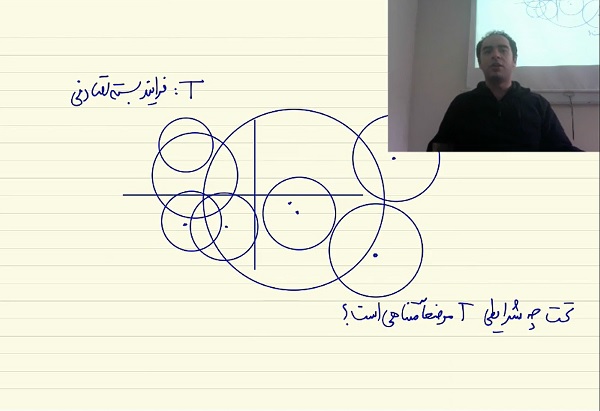 T: فرایند بسته تصادفی
تحت چه شرایطی T موضعاً متناهی است؟